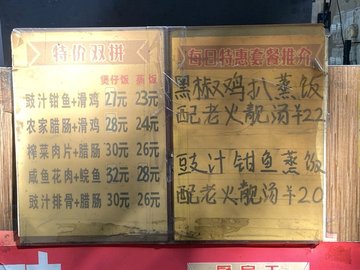 特价双拼
煲仔饭 蒸饭
豉汁钳鱼+滑鸡 27元 23元
农家腊肠+滑鸡 28元 24元
榨菜肉片+腊肠 30元 26元
咸鱼花肉+鲩鱼 32元 28元
豉汁排骨+腊肠 30元 26元
每日特惠套餐推介
黑椒鸡扒蒸饭
配老火靓汤¥22
豉汁钳鱼蒸饭
配老火靓汤¥20